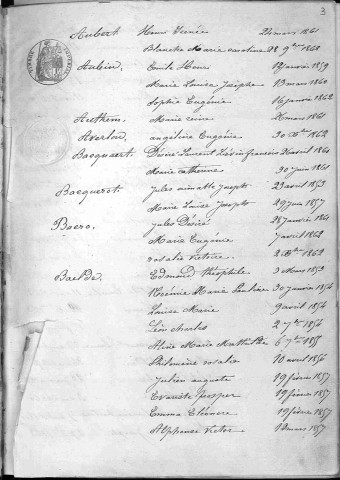 3
Aubert Henri Irénée 21 mars 1861
Blanche Marie Caroline 28 9bre 1862
Aubin, Emile Henri 12 janvier 1859
Marie Louise Josèphe 13 mars 1860
Sophie Eugénie 16 janvier 1862
Marie 26 mars 1861
Averlon, angéline Eugénie 30 8bre 1862
Bacquaert, Désiré Laurent Liévin francois avril 1861
Marie catherine 30 juin 1861
Bacquerot. jules aimable Joseph 23 avril 1853
Marie Louise Josephe 29 juin 1857
Baero. jules Désiré 28 janvier 1861
Marie Eugénie 7 avril 1862
rosalie victoire 1862
Baelde, Edmond théophile 3 Mars 1853
Noémie Marie Pauline 30 janvier 1854
Louise Marie 9 avril 1854
Léon charles 2 7bre 1854
Aline Marie Mathilde 6 7bre 1855
Philomène rosalie 10 aout 1856
julien auguste 19 février 1857
Evariste prosper 19 février 1857
Emma Eléonore 19 février 1857
Alphonse Victor 12 mars 1857